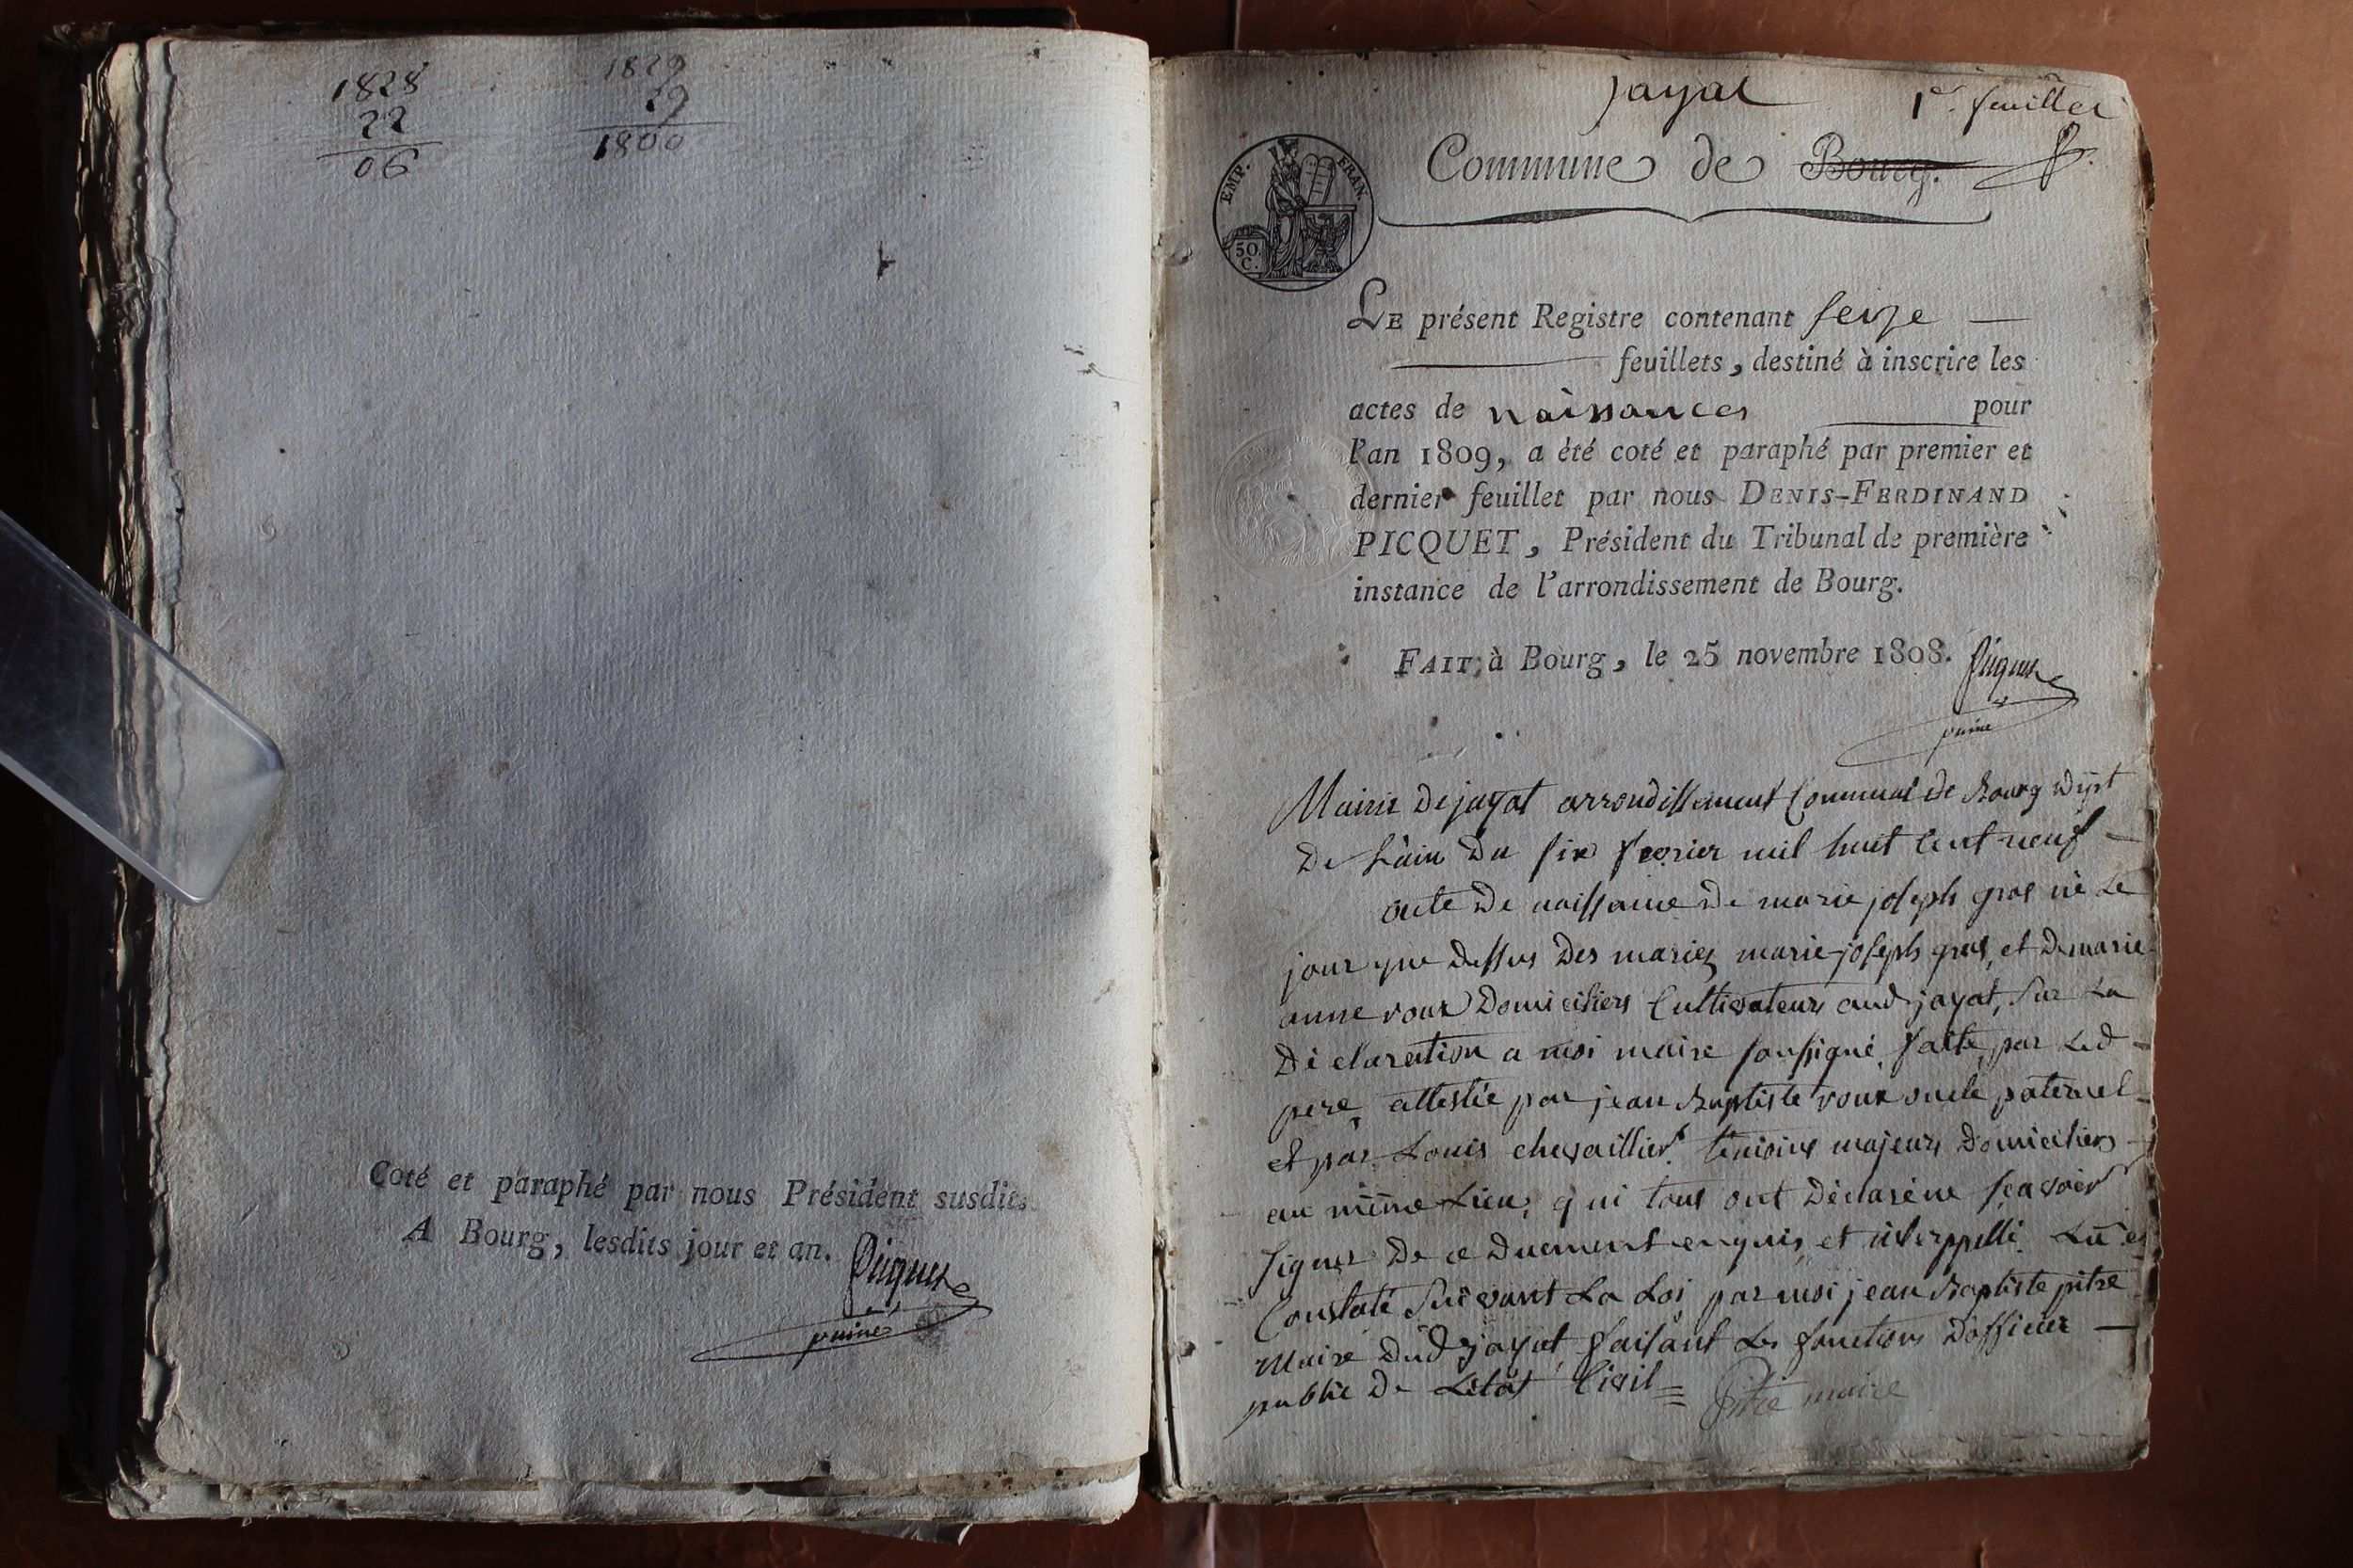 1828
22
06
1829
29
1800
Coté et paraphé par nous Président susdit.
A Bourg, lesdits jour et an. Picquet
puiné
jayat
1er feuillet
EMP. FRAN.
50
C.
Commune de Bourg.
LE présent Registre contenant seize
feuillets, destiné à inscrire les
actes de naissances pour
l'an 1809, a été coté et paraphé par premier et
dernier feuillet par nous DENIS-FERDINAND
PICQUET, Président du Tribunal de première
instance de l'arrondissement de Bourg.
FAIT à Bourg, le 25 novembre 1808. Picquet
puiné
Mairie De jayat arrondissement Communal de Bourg Dépt
De L'ain Du six fevrier mil huit Cent neuf
acte De naissance De marie joseph gros né Le
jour que Dessus Des mariez marie-joseph gros, et De marie
anne roux Domiciliers Cultivateurs aud jayat, Sur La
Déclaration a moi maire soussigné, faite par Led
pere, attestée par jean Baptiste roux oncle paternel
et par Louis chevaillier temoins majeurs Domiciliers
au même Lieu, qui tous ont Déclaré ne sçavoir
signer De ce Duement enquis, et interppellé. Lu et
Constaté Suivant La Loi par moi jean Baptiste pitre
Maire Dud jayat, faisant Les fonctions D'officier
public De Létat Civil = Pitre maire